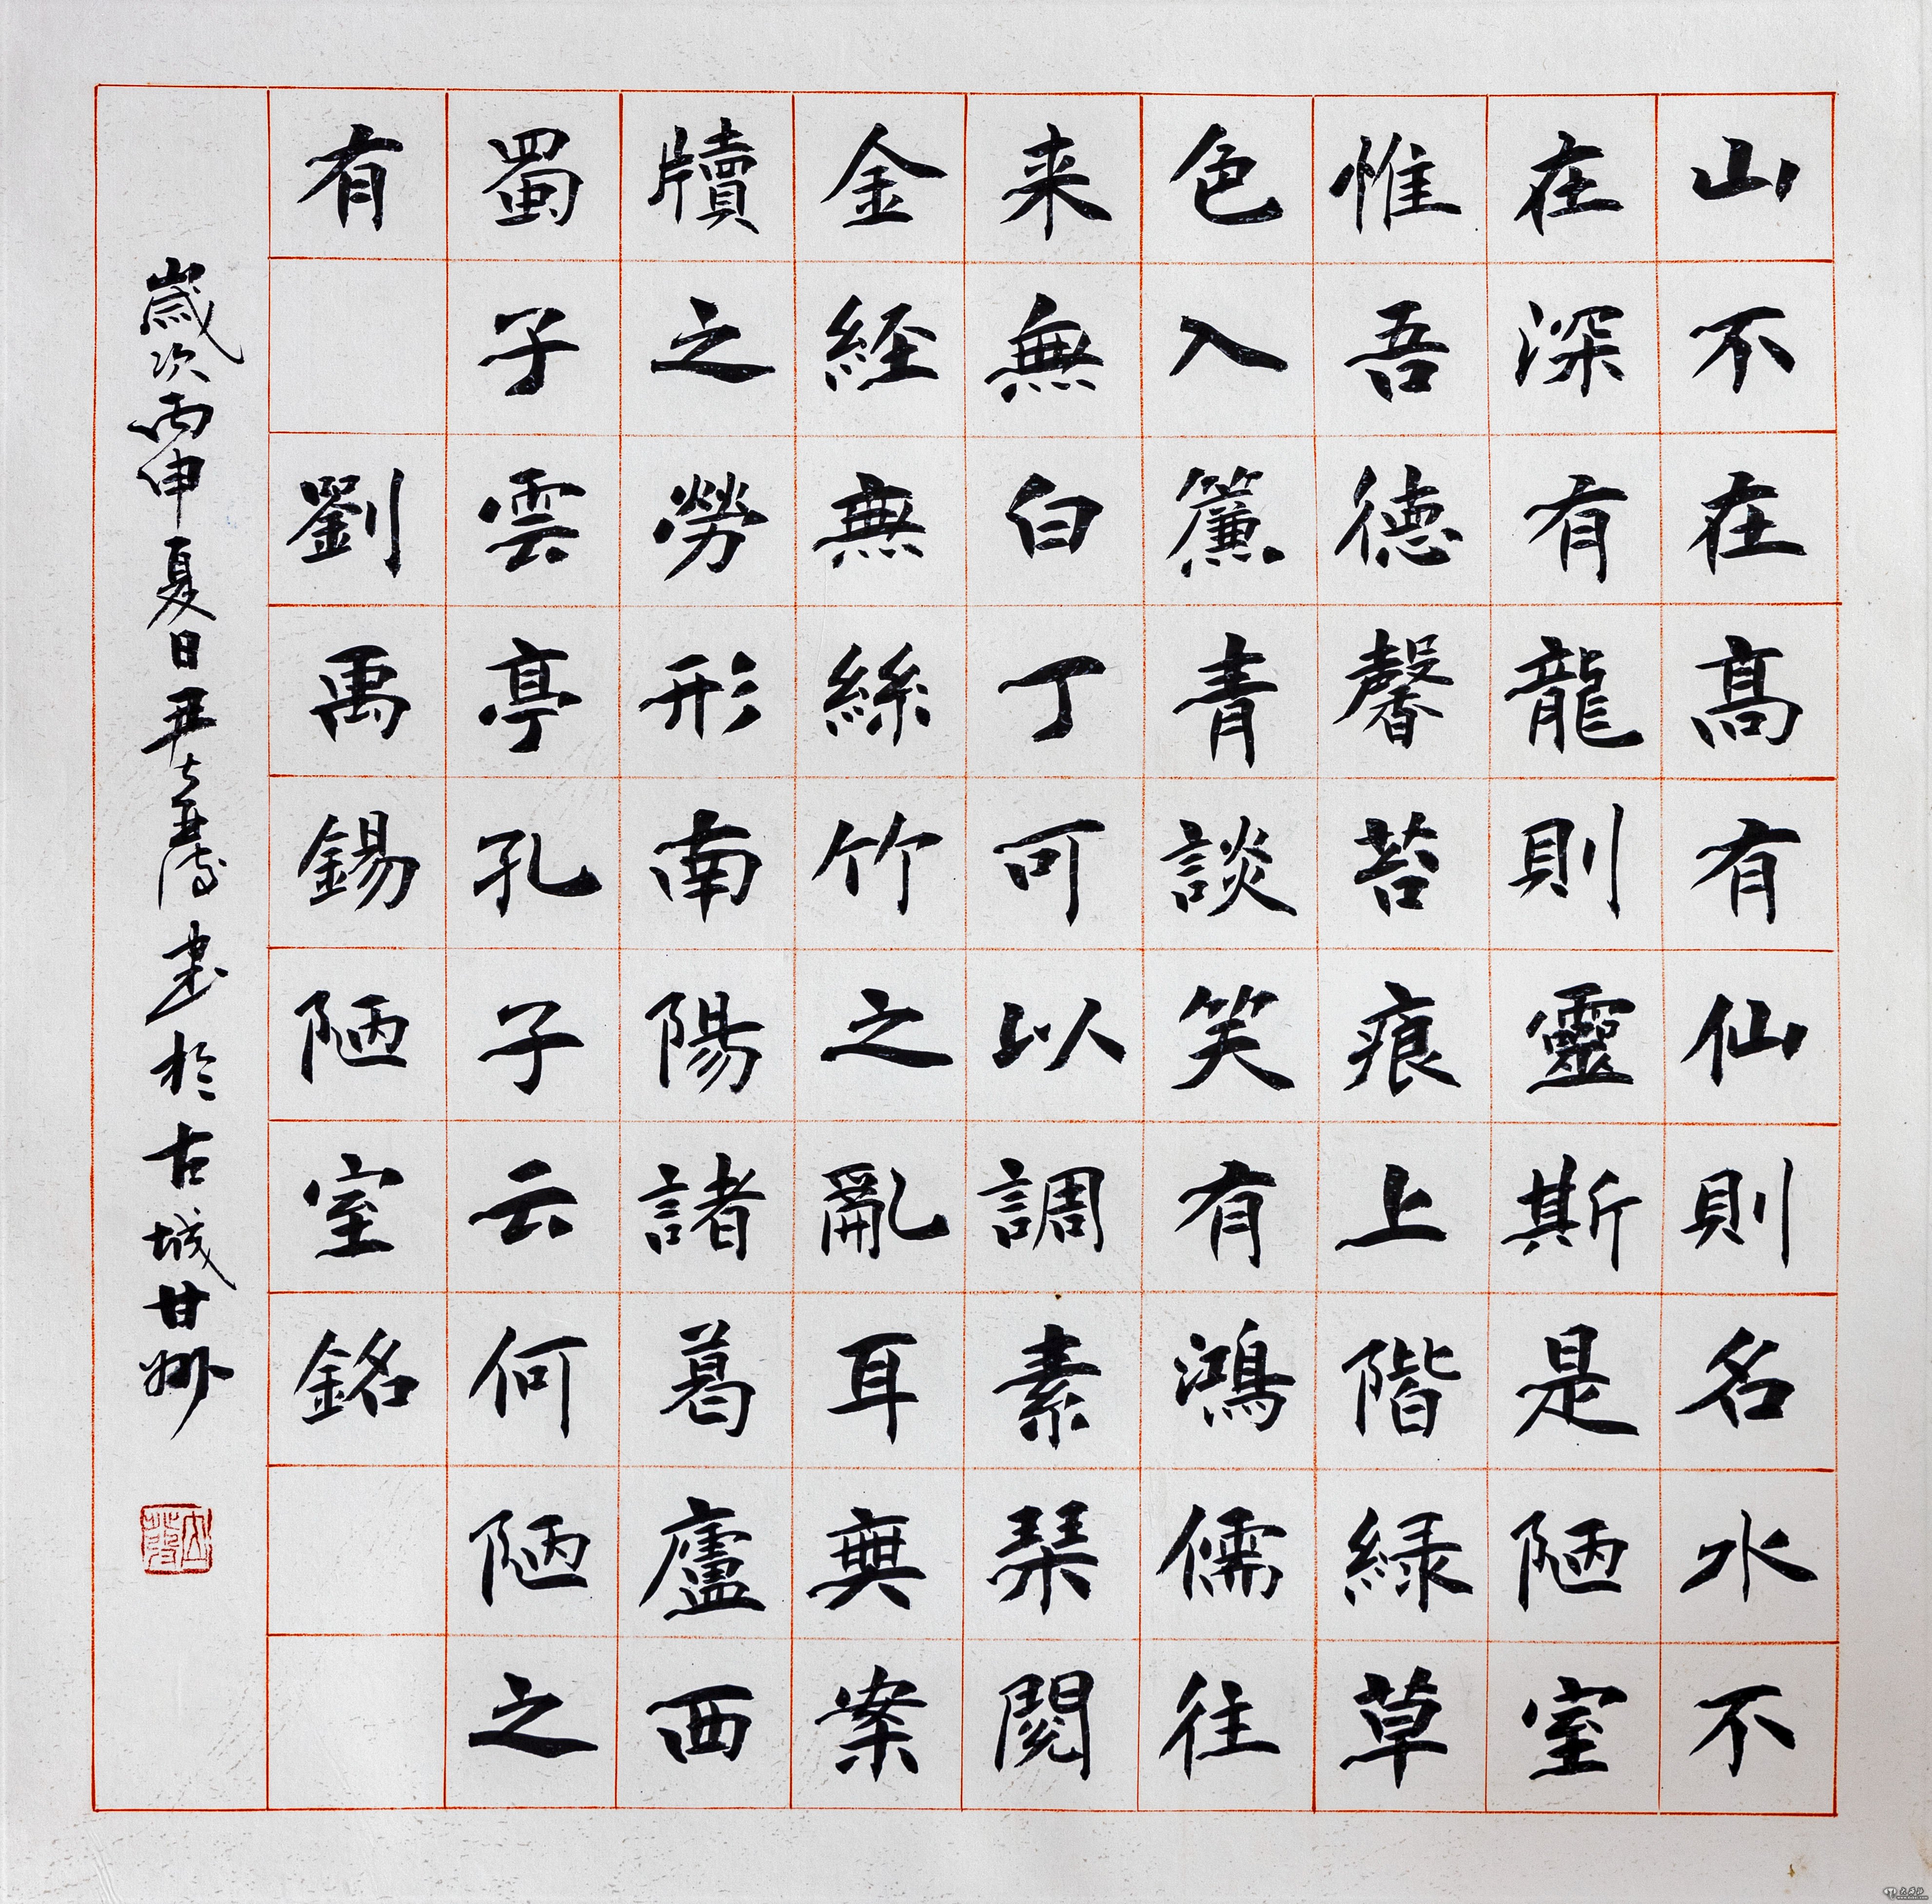 山不在高有仙則名水不
在深有龍則靈斯是陋室
惟吾德馨苔痕上階緑草
色入簾青談笑有鴻儒往
来無白丁可以調素琴閱
金経無絲竹之亂耳無案
牘之勞形南陽諸葛廬西
蜀子雲亭孔子云何陋之
有 劉禹錫陋室銘
歲次丙申夏日 書於古城甘州